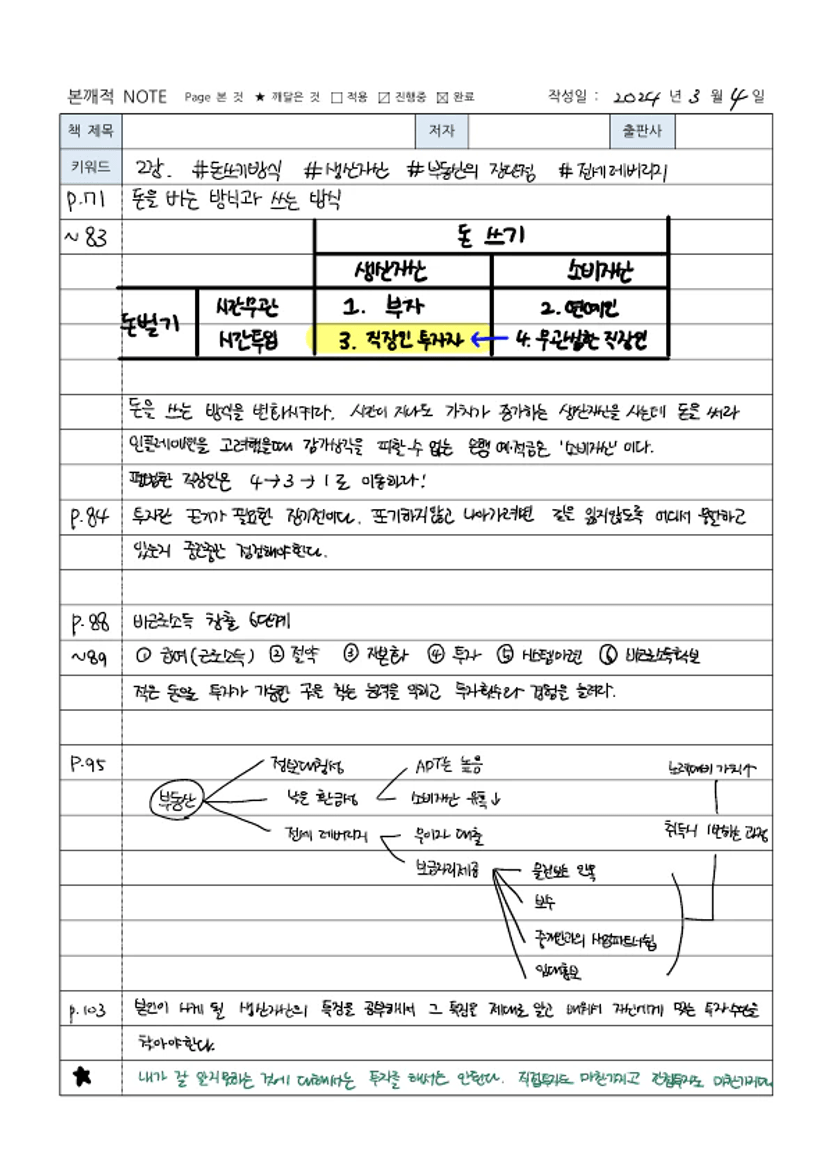 본깨적 NOTE Page 본 것 ★ 깨달은 것 □ 적용 ☑ 진행중 ☒ 완료 작성일 : 2024 년 3 월 4 일
책 제목 저자 출판사
키워드 2장. #돈쓰기방식 #생산자산 #부동산의 장단점 #전세레버리지
p.71 돈을 버는 방식과 쓰는 방식
~83 돈 쓰기
생산자산 소비자산
돈벌기 시간무관 1. 부자 2. 연예인
시간투입 3. 직장인 투자자 ← 4. 무관심한 직장인
돈을 쓰는 방식을 변화시켜라. 시간이 지나도 가치가 증가하는 생산자산을 사는데 돈을 써라
인플레이션을 고려했을때 감가상각을 피할 수 없는 은행 예·적금은 '소비자산' 이다.
평범한 직장인은 4→3→1로 이동하라!
p.84 투자란 끈기가 필요한 장기전이다. 포기하지않고 나아가려면 길을 잃지않도록 어디서 출발하고
있는지 중간중간 점검해야한다.
p.88 비근로소득 창출 6단계
~89 ① 급여(근로소득) ② 절약 ③ 자본화 ④ 투자 ⑤ 시스템마련 ⑥ 비근로소득확보
적은 돈으로 투자가 가능한 곳을 찾는 능력을 익히고 투자횟수와 경험을 늘려라.
P.95 정보대칭성 APT는 높음 노력대비 가치↑
부동산 낮은 환금성 소비자산 유혹↓
전세 레버리지 무이자 대출 취득시 1번하는 과정
보금자리제공 물건보는 안목
보수
중개인과의 사업파트너십
임대홍보
p.103 본인이 사게 될 생산자산의 특징을 공부해서 그 특징을 제대로 알고 배워서 자신에게 맞는 투자수단을
찾아야한다.
★ 내가 잘 알지못하는 것에 대해서는 투자를 해서는 안된다. 직접투자도 마찬가지고 간접투자도 마찬가지다